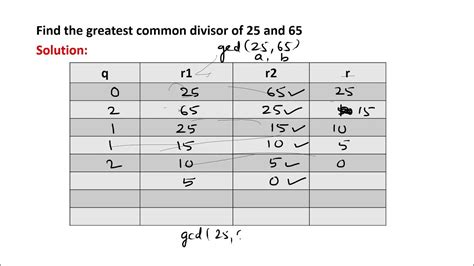 Find the greatest common divisor of 25 and 65
Solution: gcd(25,65)
a, b
q r1 r2 r
0 25 65 25
2 65 25 15
1 25 15 10
1 15 10 5
2 10 5 0
5 0
gcd(25,